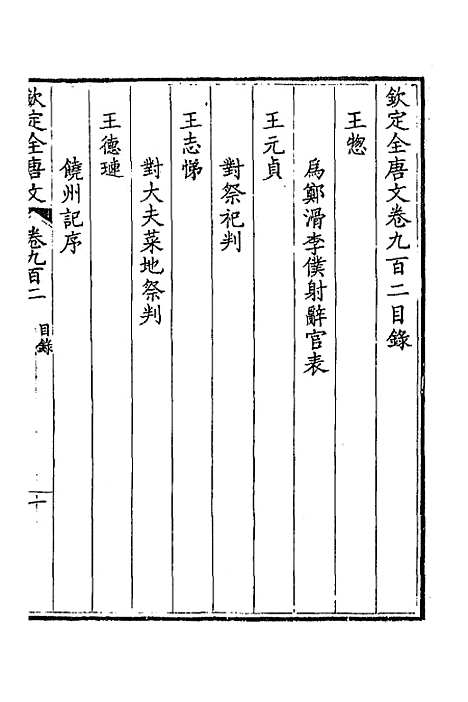 欽定全唐文卷九百二目錄
王惣
爲鄭滑李僕射辭官表
王元貞
對祭祀判
王志悌
對大夫菜地祭判
王德璉
饒州記序
欽定全唐文
卷九百二
目錄